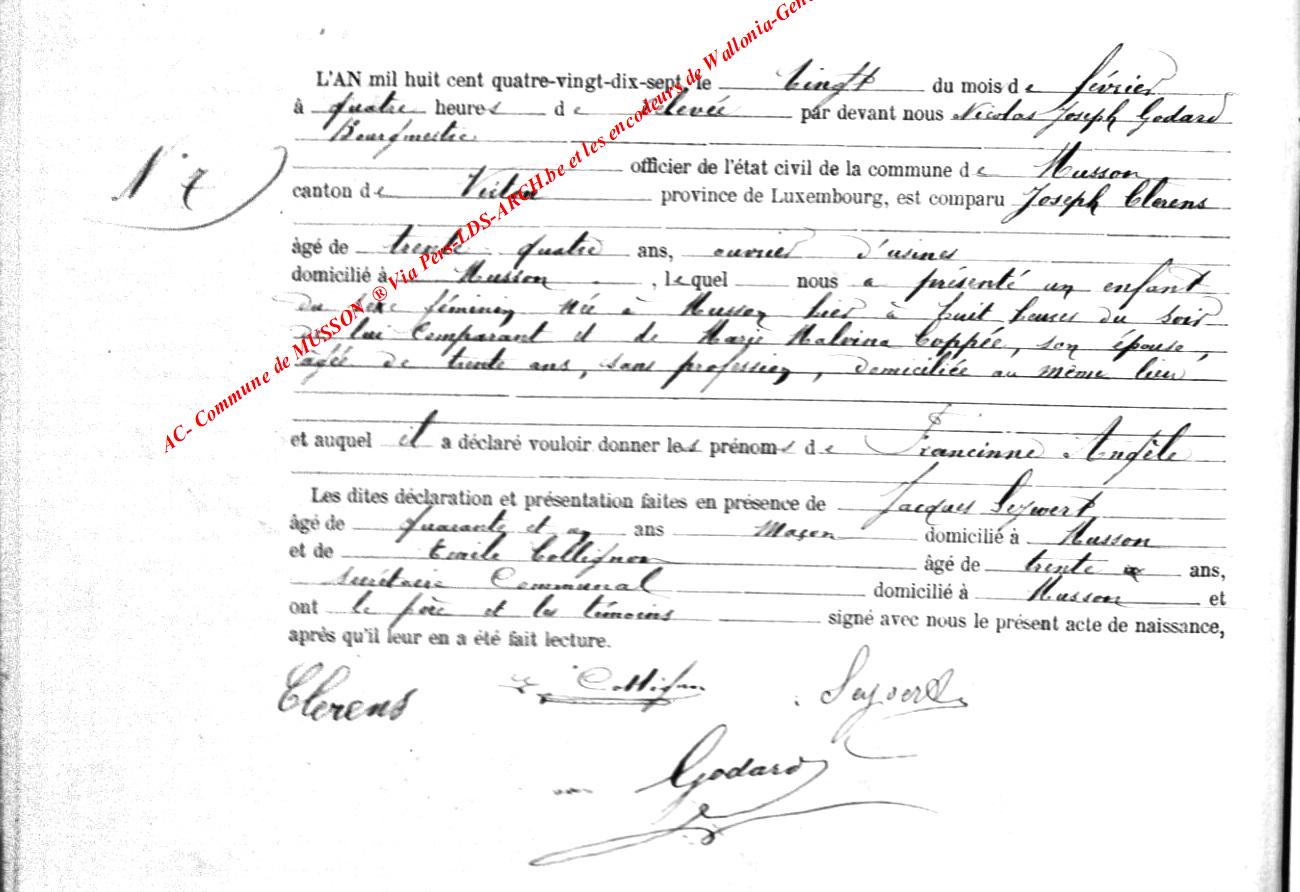 AC- Commune de MUSSON ® Via Pers-LDS-ARCH.be et les encodeurs de Wallonia-Gen
L'AN mil huit cent quatre-vingt-dix-sept, le vingt du mois de février
à quatre heures de relevée par devant nous Nicolas Joseph Godard
Bourgmestre
officier de l'état civil de la commune de Musson
N° 7
canton de Virton province de Luxembourg, est comparu Joseph Clerens
âgé de trente quatre ans, ouvrier d'usines
domicilié à Musson, lequel nous a présenté un enfant
du sexe féminin née à Musson hier à huit heures du soir
de lui Comparant et de Marie Malvina Coppée, son épouse,
âgée de trente ans, sans profession, domiciliée au même lieu
et auquel il a déclaré vouloir donner les prénoms de Francinne Angèle
Les dites déclaration et présentation faites en présence de Jacques Seywert
âgé de quarante et un ans Maçon domicilié à Musson
et de Emile Collignon âgé de trente ans,
Secrétaire Communal domicilié à Musson et
ont le père et les témoins signé avec nous le présent acte de naissance,
après qu'il leur en a été fait lecture.
Clerens Collignon Seywert
Godard